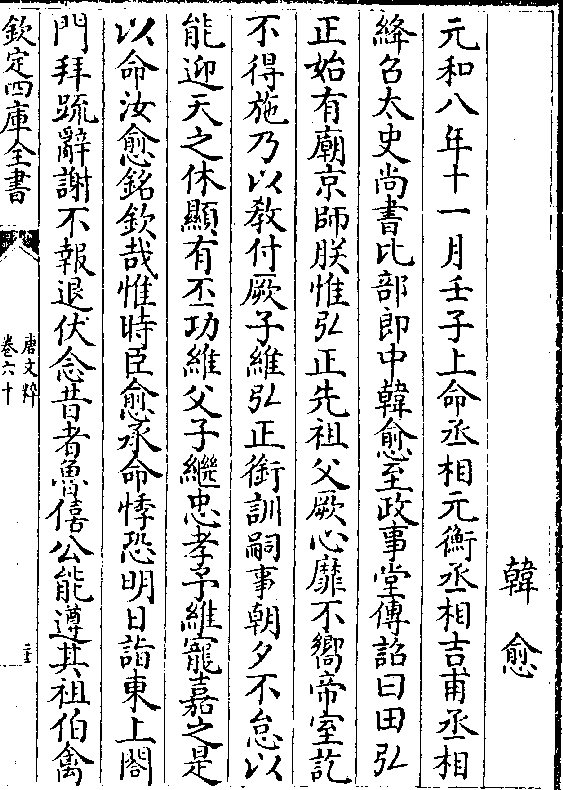 韓愈
元和八年十一月壬子上命丞相元衡丞相吉甫丞相
絳召太史尚書比部郎中韓愈至政事堂傳詔曰田弘
正始有廟京師朕惟弘正先祖父厥心靡不嚮帝室訖
不得施乃以敎付厥子維弘正銜訓嗣事朝夕不怠以
能迎天之休顯有丕功維父子繼忠孝予維寵嘉之是
以命汝愈銘欽哉惟時臣愈承命悸恐明日詣東上閤
門拜䟽辭謝不報退伏念昔者魯僖公能遵其祖伯禽
欽定四庫全書
唐文粹
卷六十